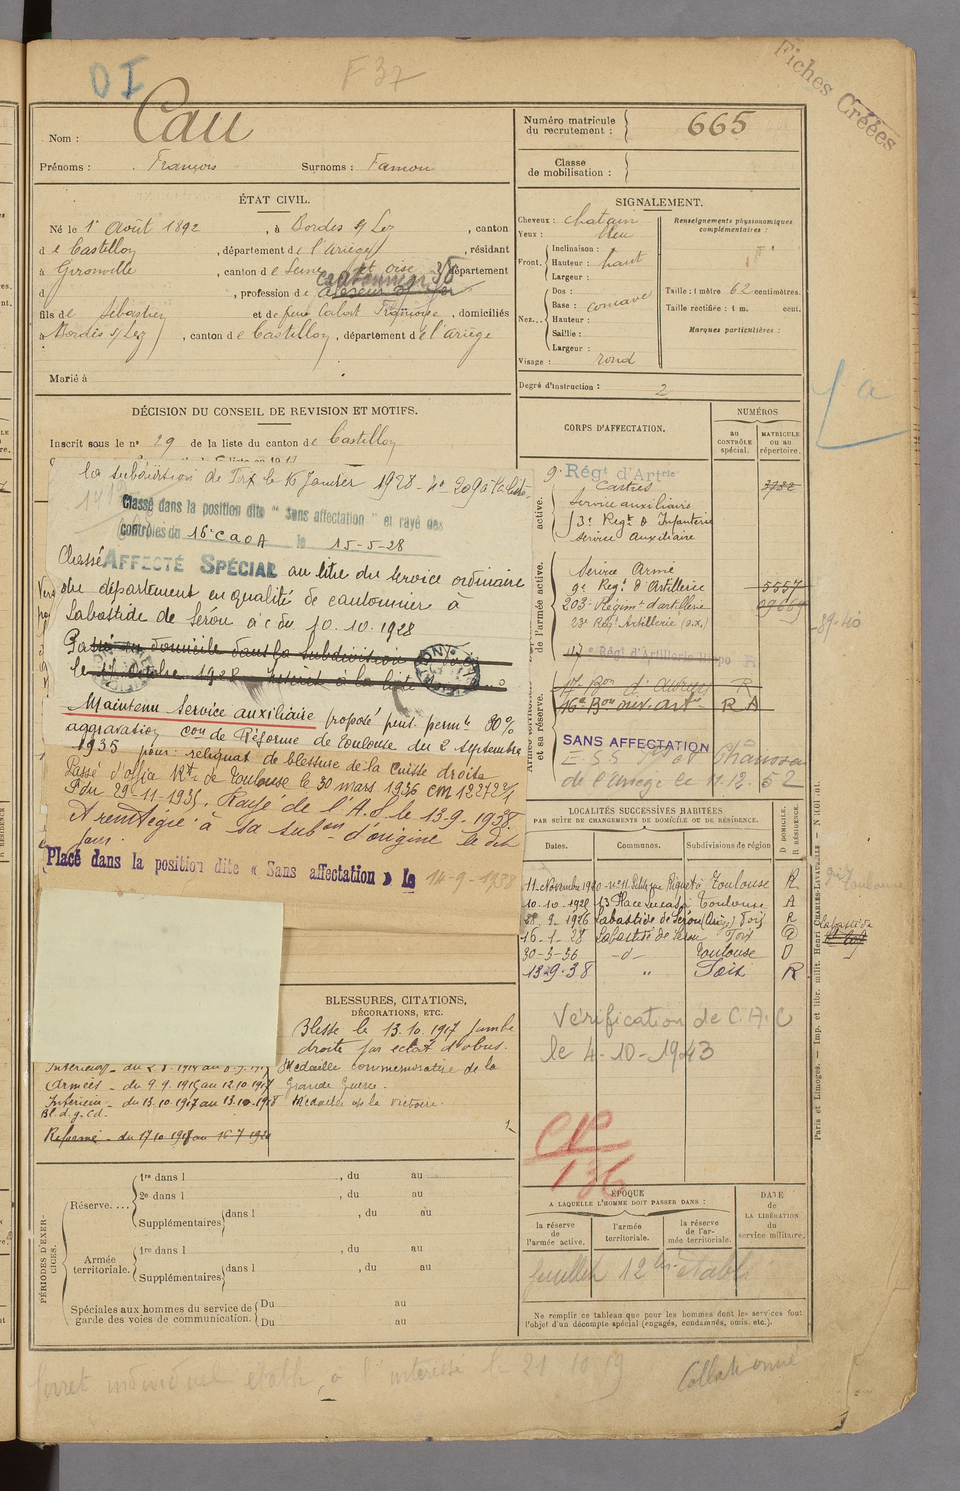 DI
F 37
Fiches Créées
Nom : Cau
Prénoms : François Surnoms : Famou
Numéro matricule du recrutement : 665
Classe de mobilisation :
ÉTAT CIVIL.
Né le 1er Août 1892, à Bordes s/ Lez, canton
de Castillon, département de l'Ariège, résidant
à Gironville, canton de Seine et oise, département
d , profession de cantonnier
fils de Sébastien et de feue Calat Françoise, domiciliés
à Bordes s/ Lez, canton de Castillon, département de l'ariège
Marié à
SIGNALEMENT.
Cheveux : chatain
Yeux : bleu
Front. Inclinaison :
Hauteur : haut
Largeur :
Nez... Dos :
Base : concave
Hauteur :
Saillie :
Largeur :
Visage : rond
Renseignements physionomiques complémentaires :
Taille : 1 mètre 62 centimètres.
Taille rectifiée : 1 m. cent.
Marques particulières :
Degré d'instruction : 2
1a
DÉCISION DU CONSEIL DE REVISION ET MOTIFS.
Inscrit sous le n° 29 de la liste du canton de Castillon
la subdivision de Foix le 16 Janvier 1928 - n° 209 à la liste
Classé dans la position dite " Sans affectation " et rayé des
contrôles du 16e C a O A le 15-5-28
Classé AFFECTÉ SPÉCIAL au titre du service ordinaire
du département en qualité de cantonnier à
Labastide de Sérou à c du 10.10.1928
Passé au domicile dans la subdivision
le 17 Octobre 1928
Maintenu Service auxiliaire proposé pens. permte 80%
aggravation Con de Réforme de Toulouse du 2 septembre
1935 pour : reliquat de blessure de la cuisse droite
Passé d'office Rt de Toulouse le 30 mars 1936 CM 12272 3/1
P du 29-11-1935. Rayé de l'A.S. le 13-9-1938.
et réintégré à sa subon d'origine le dit
jour.
Placé dans la position dite « Sans affectation » le 14-9-1938
CORPS D'AFFECTATION.
NUMÉROS
au CONTRÔLE spécial.
MATRICULE ou au répertoire.
9e Régt d'Artrie
Castres 3732
Service auxiliaire
53e Regt d'Infanterie
Service Auxiliaire
Service Armé
9e Regt d'Artillerie 5557
203e Régimt d'artillerie 09669
23e Regt Artillerie (s.x.)
117e Régt d'Artillerie Hippo R
17e Bon d'Autres R
16e Bon ouv. art. R A
SANS AFFECTATION
de l'Ariège le 11-12-52
active.
de l'armée active.
et sa réserve.
89-40
LOCALITÉS SUCCESSIVES HABITÉES
PAR SUITE DE CHANGEMENTS DE DOMICILE OU DE RÉSIDENCE.
Dates. Communes. Subdivisions de région D. DOMICILE. R. RÉSIDENCE.
11 Novembre 1920 - n° 11 Petite rue Riquet à Toulouse R
10-10-1928 13 Place Lucas Toulouse A
28-9-1926 Labastide de Sérou (Ariège) Foix R
16-1-28 Labastide de Sérou Foix
30-3-36 -d°- Toulouse D
13-9-38 " Foix R
Toulouse
Labastide
Vérification de C.A.C
le 4-10-1943
CP
136
BLESSURES, CITATIONS,
DÉCORATIONS, ETC.
Blessé le 13.10.1917 jambe
droite par éclat d'obus.
Médaille Commémorative de la
Grande Guerre.
Médaille de la Victoire.
Armées - du 9.9.1915 au 12.10.1917
Intérieur - du 13.10.1917 au 13.10.1918
Bl.d.g.Cd.
Réformé - du 17.10.1918 au 16.7.1920
PÉRIODES D'EXERCICES.
Réserve.... 1re dans l , du au
2e dans l , du au
Supplémentaires dans l , du au
Armée territoriale. 1re dans l , du au
Supplémentaires dans l , du au
Spéciales aux hommes du service de garde des voies de communication. Du au
Du au
ÉPOQUE
A LAQUELLE L'HOMME DOIT PASSER DANS :
la réserve de l'armée active.
l'armée territoriale.
la réserve de l'armée territoriale.
DATE de LA LIBÉRATION du service militaire.
feuillet 12 bis établi
Ne remplir ce tableau que pour les hommes dont les services font
l'objet d'un décompte spécial (engagés, condamnés, omis, etc.).
Paris et Limoges. — Imp. et libr. milit. Henri CHARLES-LAVAUZELLE
livret individuel établi à l'intéressé le 21 10 19
Collationné